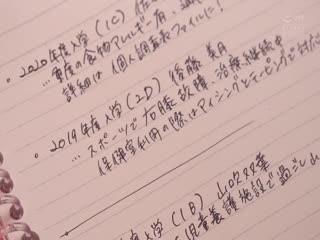 ・2020年度入学(1C)佐
…重度の食物アレルギー有、
詳細は個人調査表ファイルに!
・2019年度入学(2D)後藤美月
…スポーツで右膝故障、治療継続中
保健室利用の際はアイシングとテーピングで対応
年度入学(1B)山口久双葉
児童養護施設で過ごし